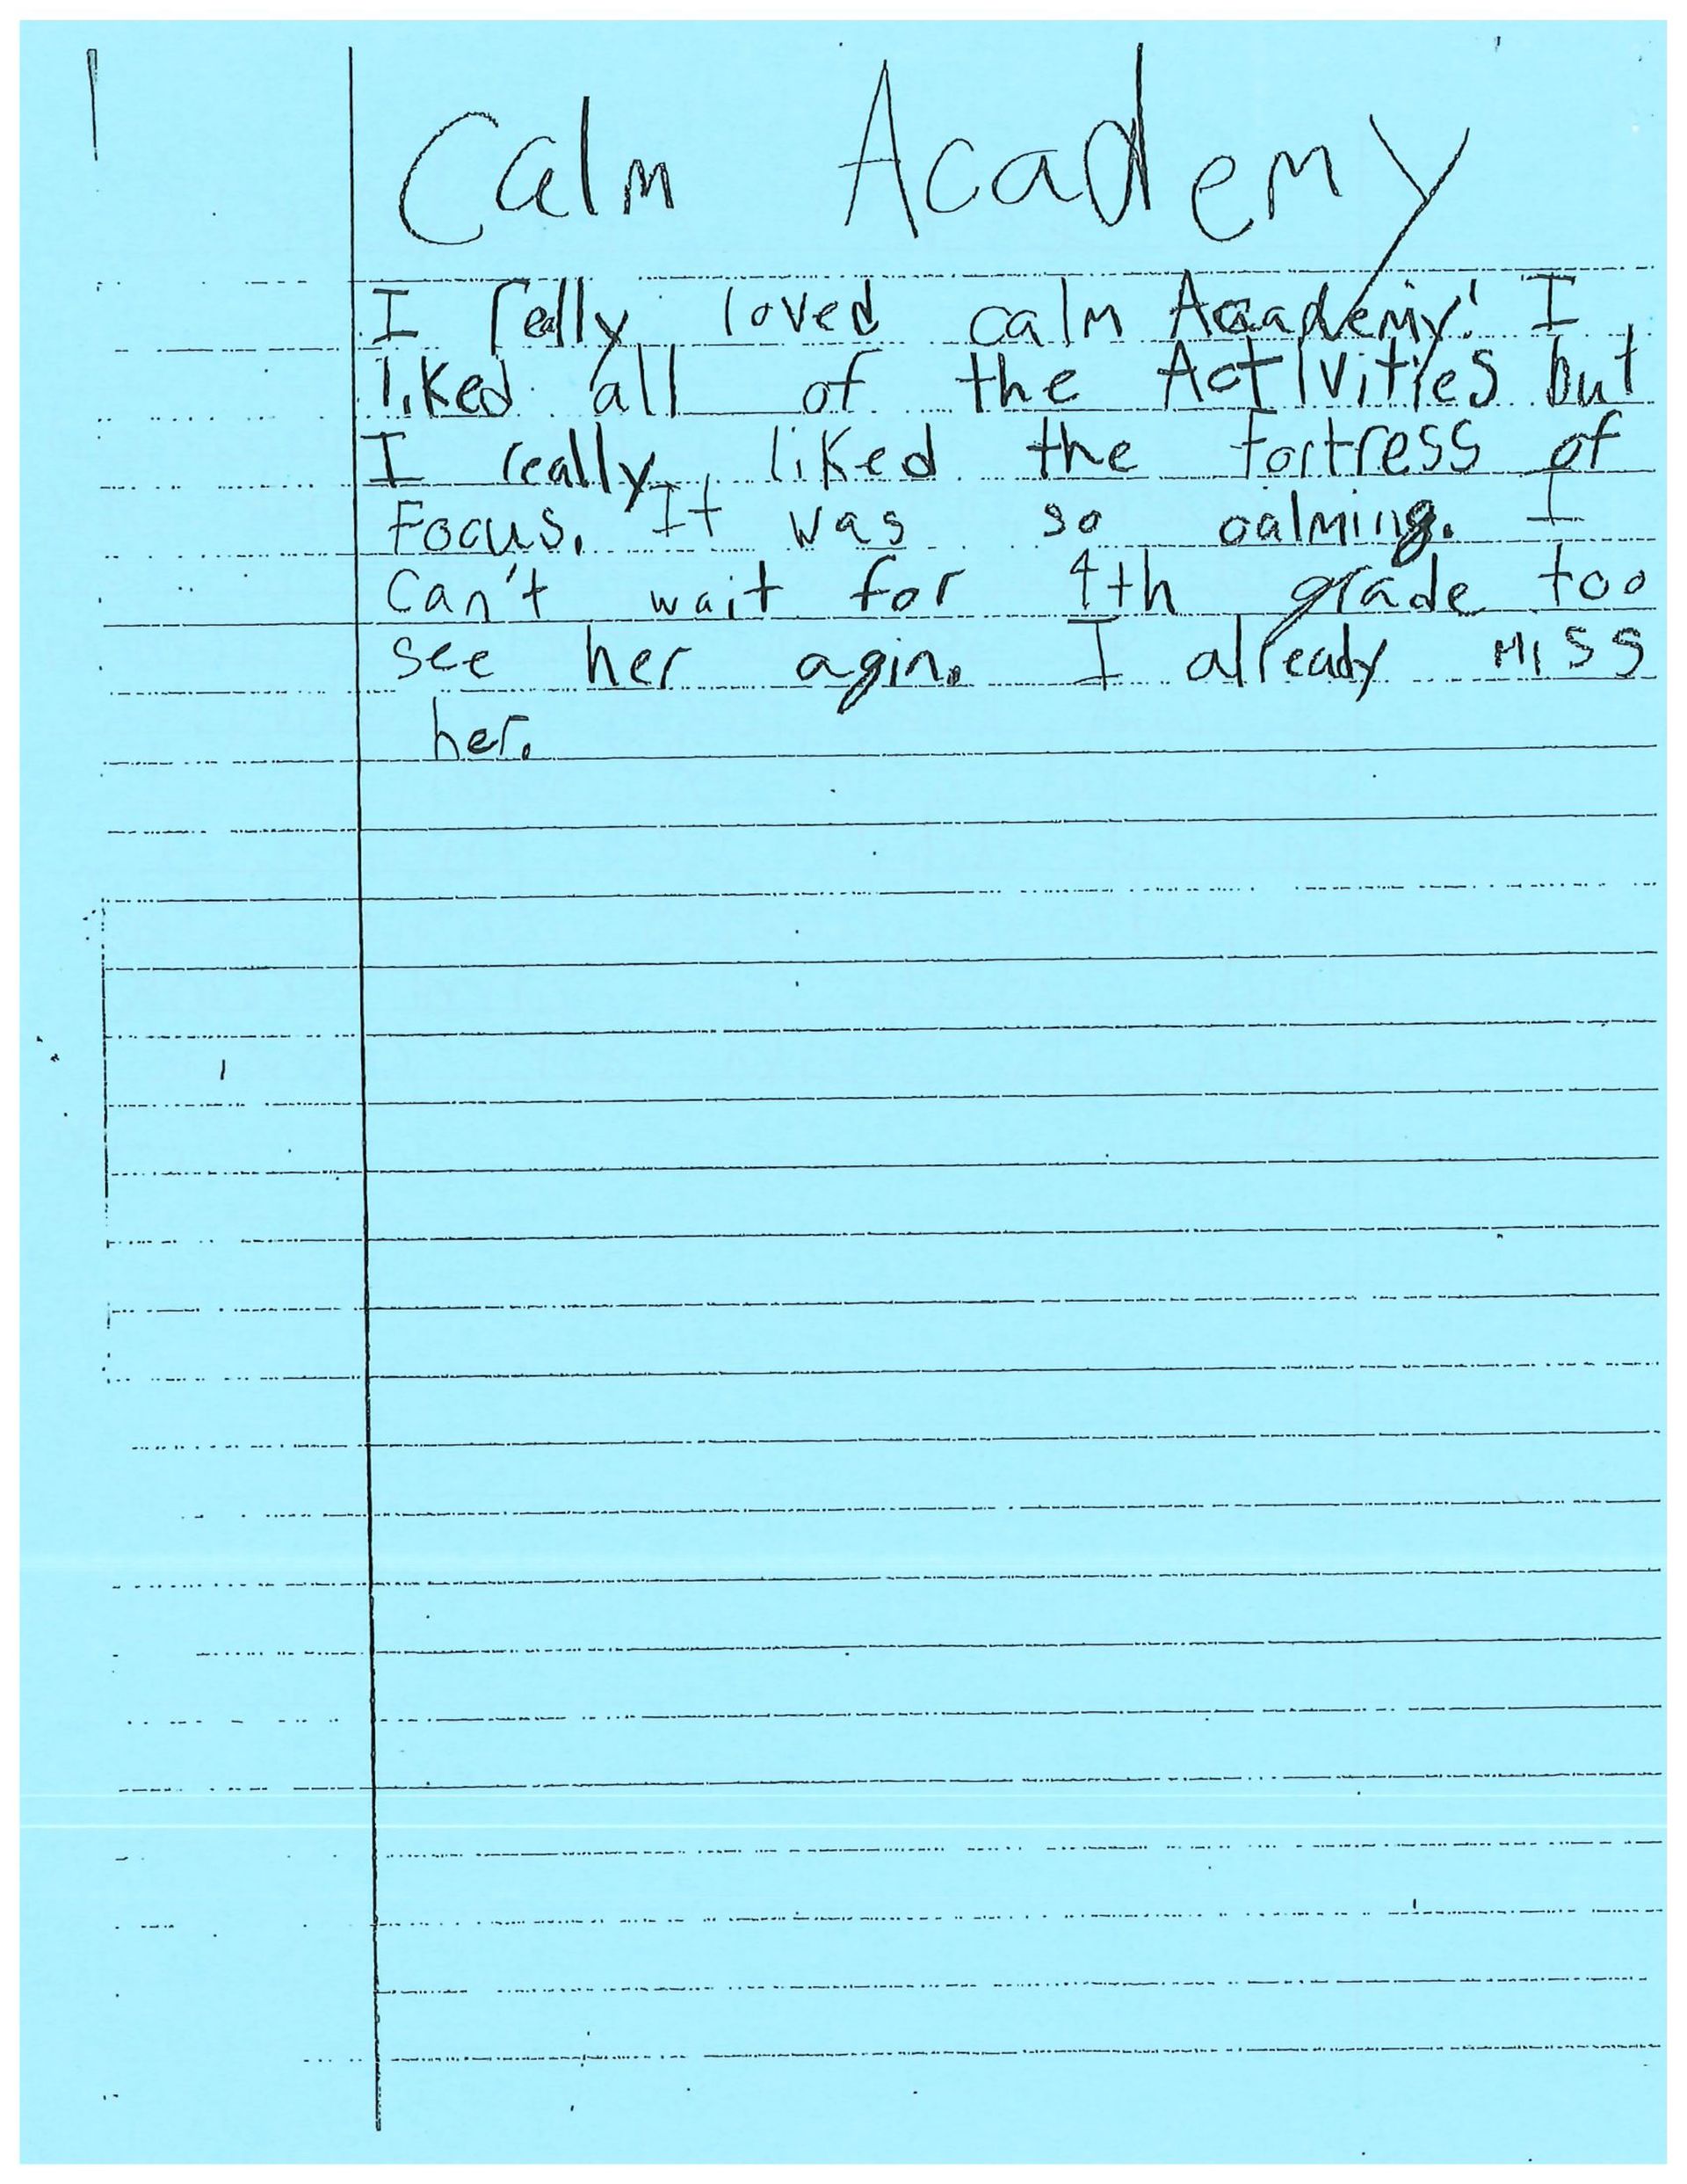 Calm Academy
I really loved calm Academy! I
liked all of the Activities but
I really liked the fortress of
Focus. It was so calming. I
can't wait for 4th grade too
see her agin. I already miss
her.